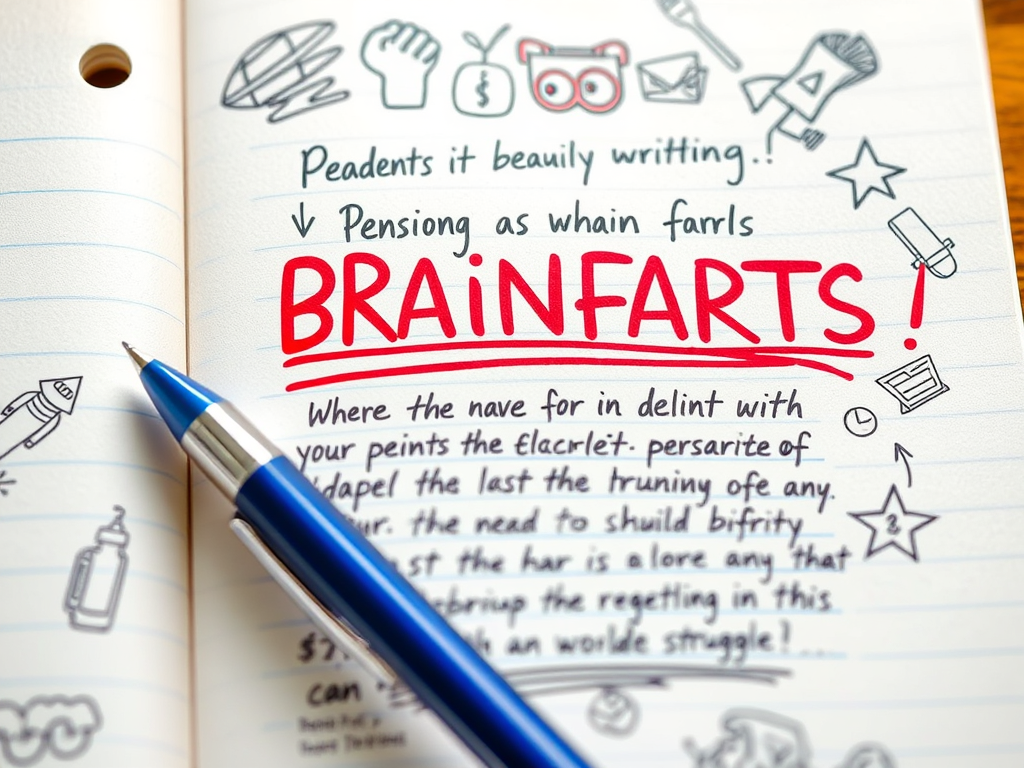 Peadents it beauily writting..!
↓ Pensiong as whain farrls
BRAiNFARTS!
Where the nave for in delint with
your peints the persarite of
dapel the last the truning ofe any.
ur. the nead to shuild bifrity
st the har is a lore any that
ebriup the regetling in this
$7. h an worlde struggle!...
can